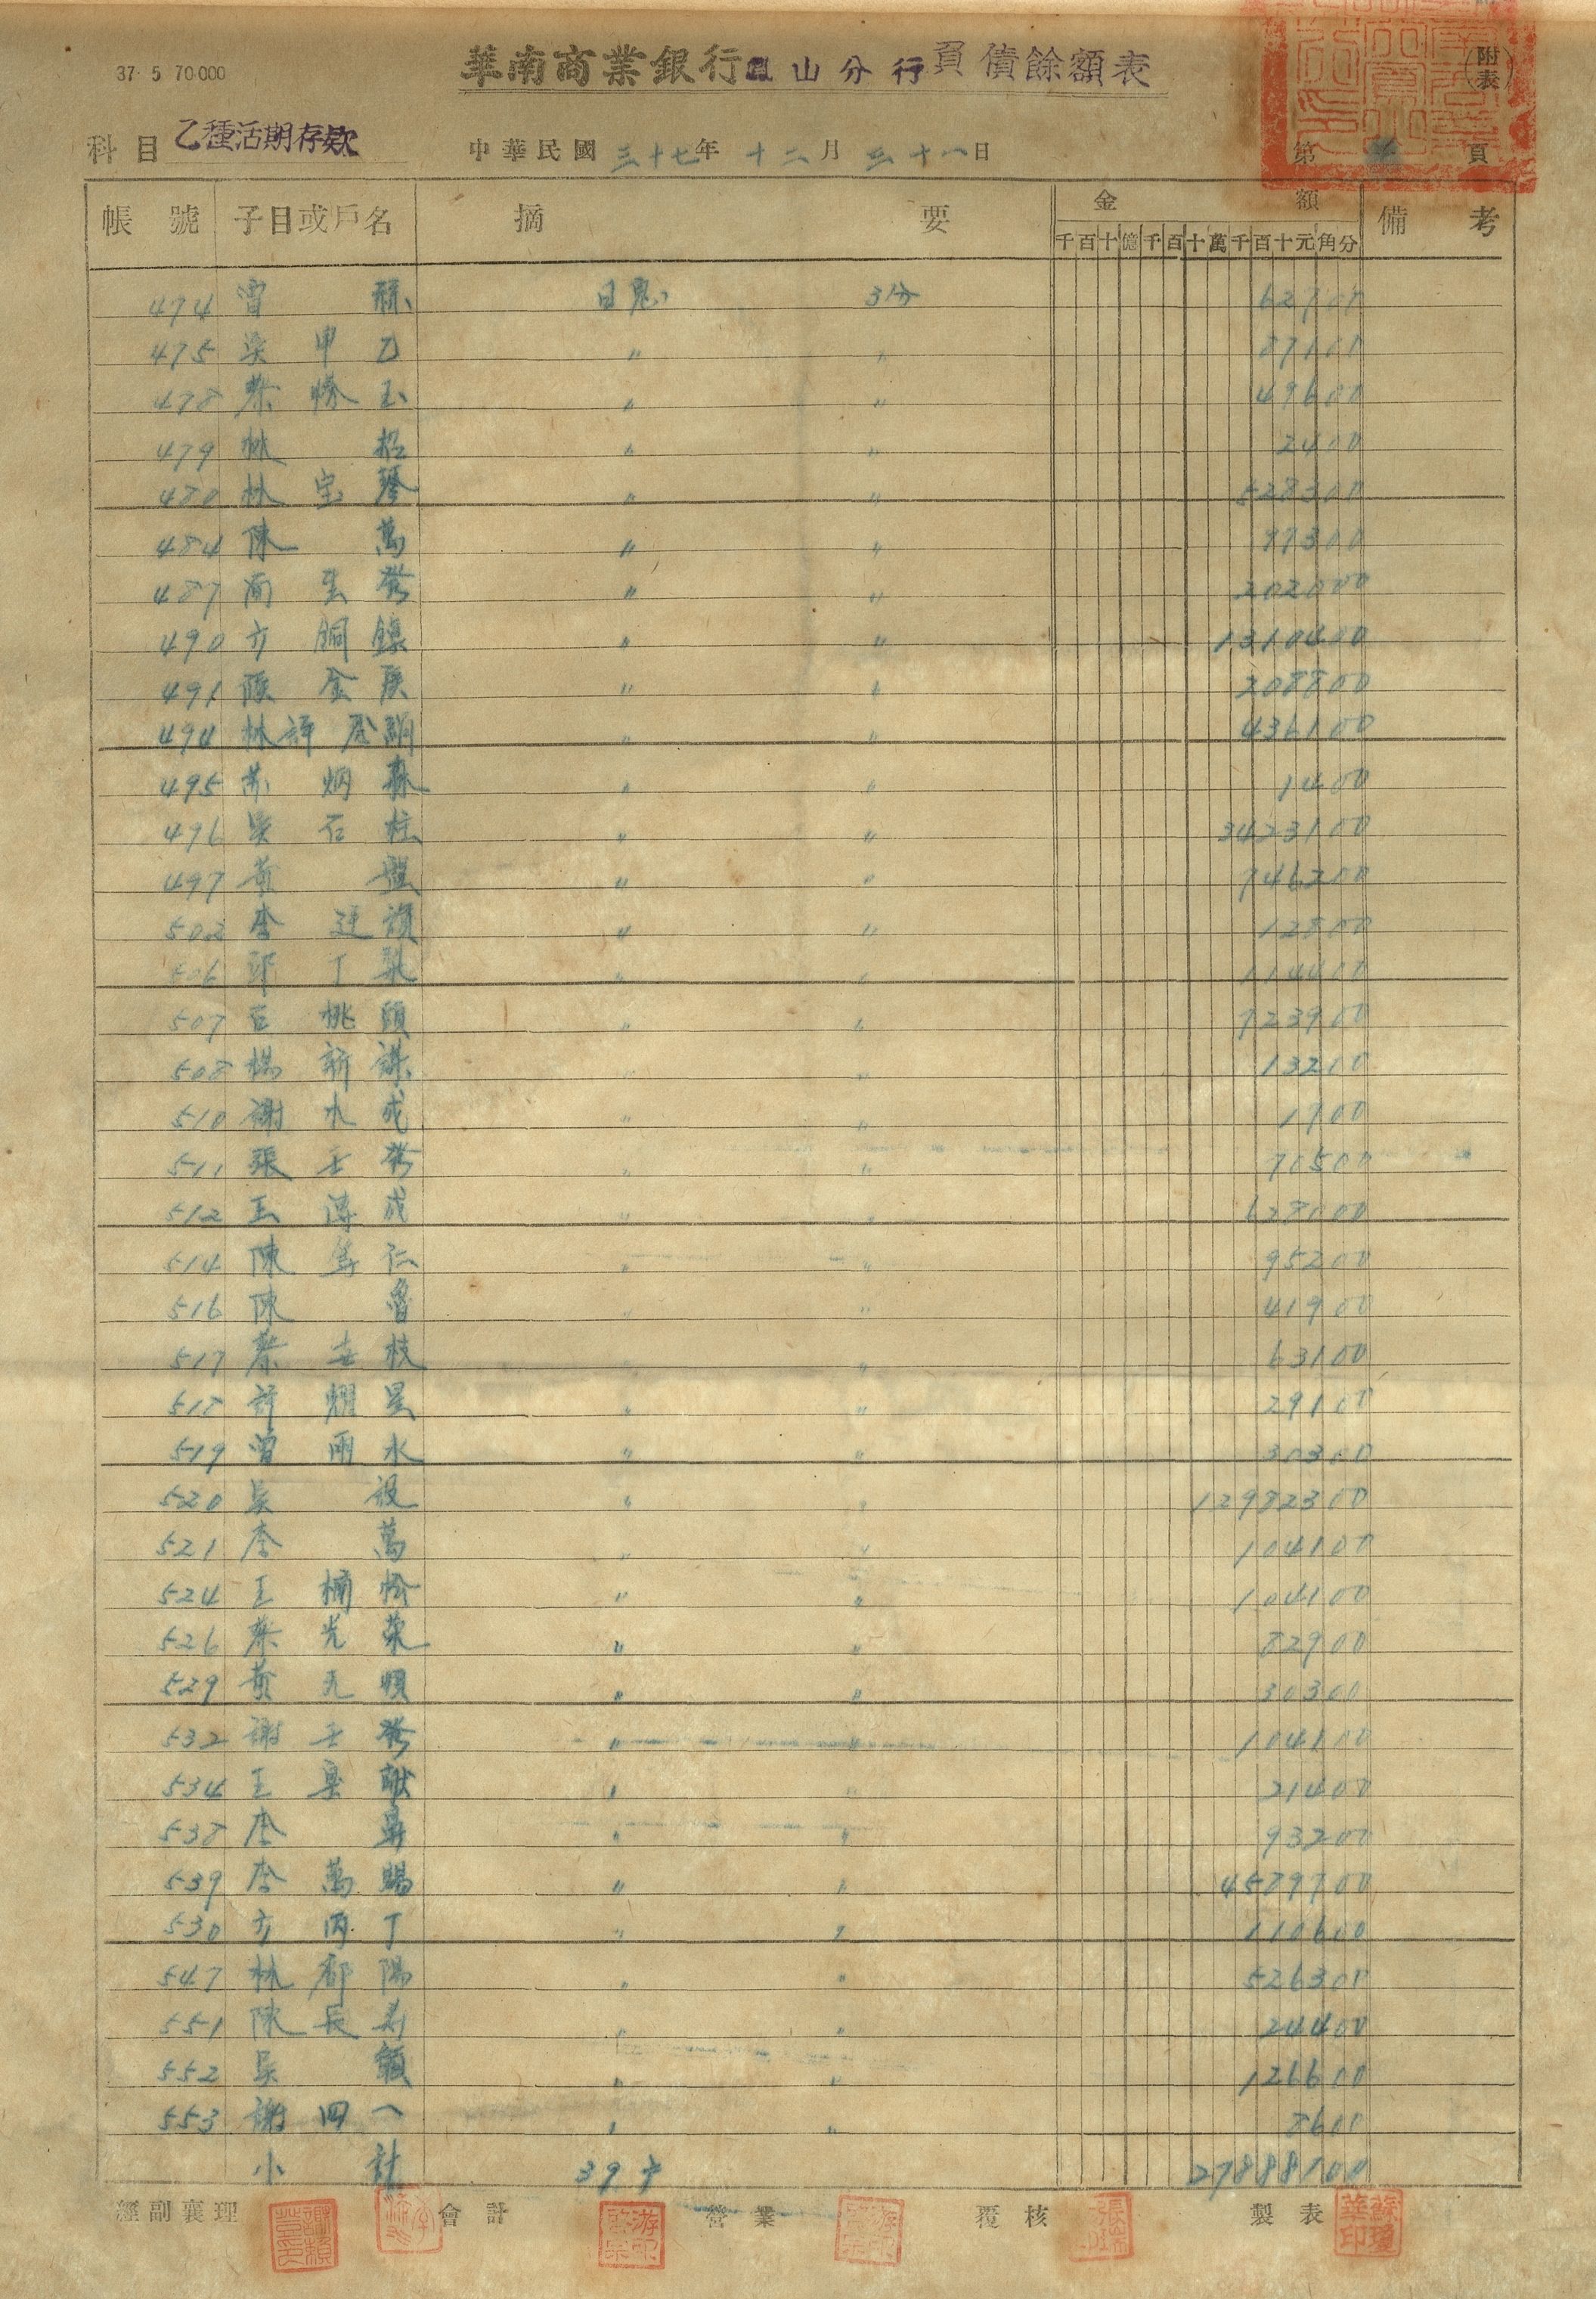 37 5 70.000
華南商業銀行鳳山分行負債餘額表
(附表)
科目 乙種活期存款 中華民國三十七年十二月三十一日 第 頁
帳號 子目或戶名 摘要 金額 備考
千百十億千百十萬千百十元角分
474 曾 日息 3分 62700
475 梁甲乙 〃 〃 87100
478 蔡勝玉 〃 〃 49600
479 林招 〃 〃 2400
480 林宝琴 〃 〃 528300
484 陳萬 〃 〃 97300
487 〃 〃 202000
490 方銅鐘 〃 〃 1310400
491 陳金 〃 〃 208800
494 林許 〃 〃 436100
495 蘇炳森 〃 〃 1400
496 吳石柱 〃 〃 3423100
497 黃盤 〃 〃 746200
502 李連 〃 〃 12800
506 邱丁 〃 〃 114400
507 石桃頭 〃 〃 723900
508 楊新謀 〃 〃 13200
510 謝水成 〃 〃 1700
511 張壬癸 〃 〃 70500
512 王清成 〃 〃 628000
514 陳等仁 〃 〃 95200
516 陳魯 〃 〃 41900
517 蔡安枝 〃 〃 63100
518 許耀星 〃 〃 29100
519 曾雨水 〃 〃 30300
520 吳設 〃 〃 12982300
521 李萬 〃 〃 104100
524 王桶 〃 〃 104100
526 蔡光榮 〃 〃 82900
529 黃天順 〃 〃 30300
532 謝壬癸 〃 〃 104100
534 王梁献 〃 〃 21400
538 李 〃 〃 93200
539 李萬賜 〃 〃 4589700
530 方丙丁 〃 〃 110600
547 林郡陽 〃 〃 526300
551 陳長壽 〃 〃 24400
552 吳 〃 〃 126600
553 謝四 〃 〃 8600
小計 39戶 27888100
經副襄理 會計 營業 覆核 製表
蘇瓊華印